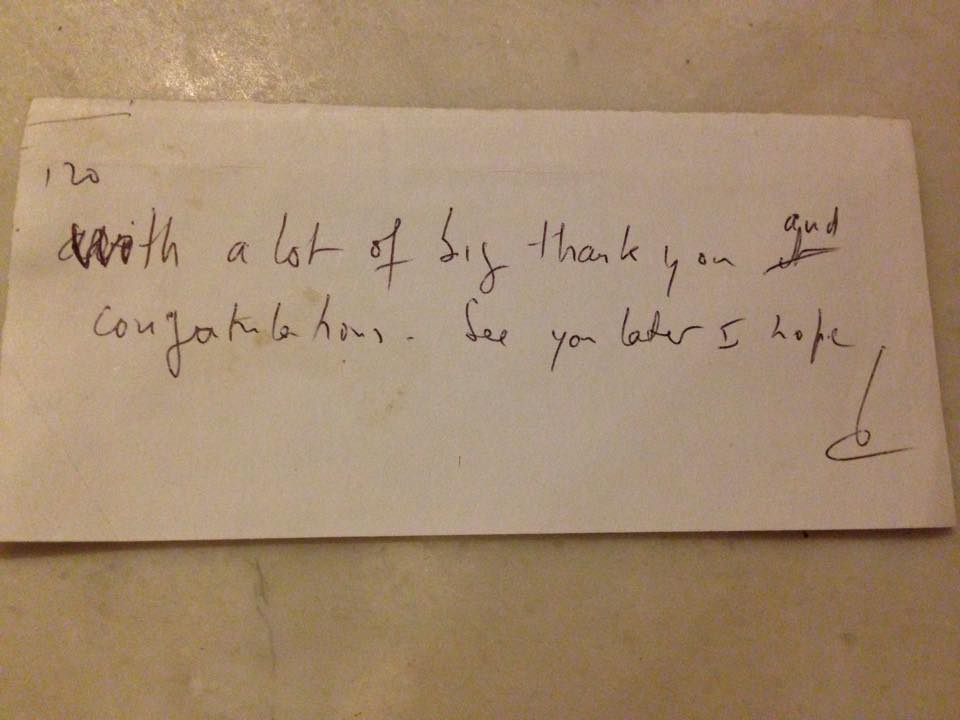 120
with a lot of big thank you and
congratulations. See you later I hope